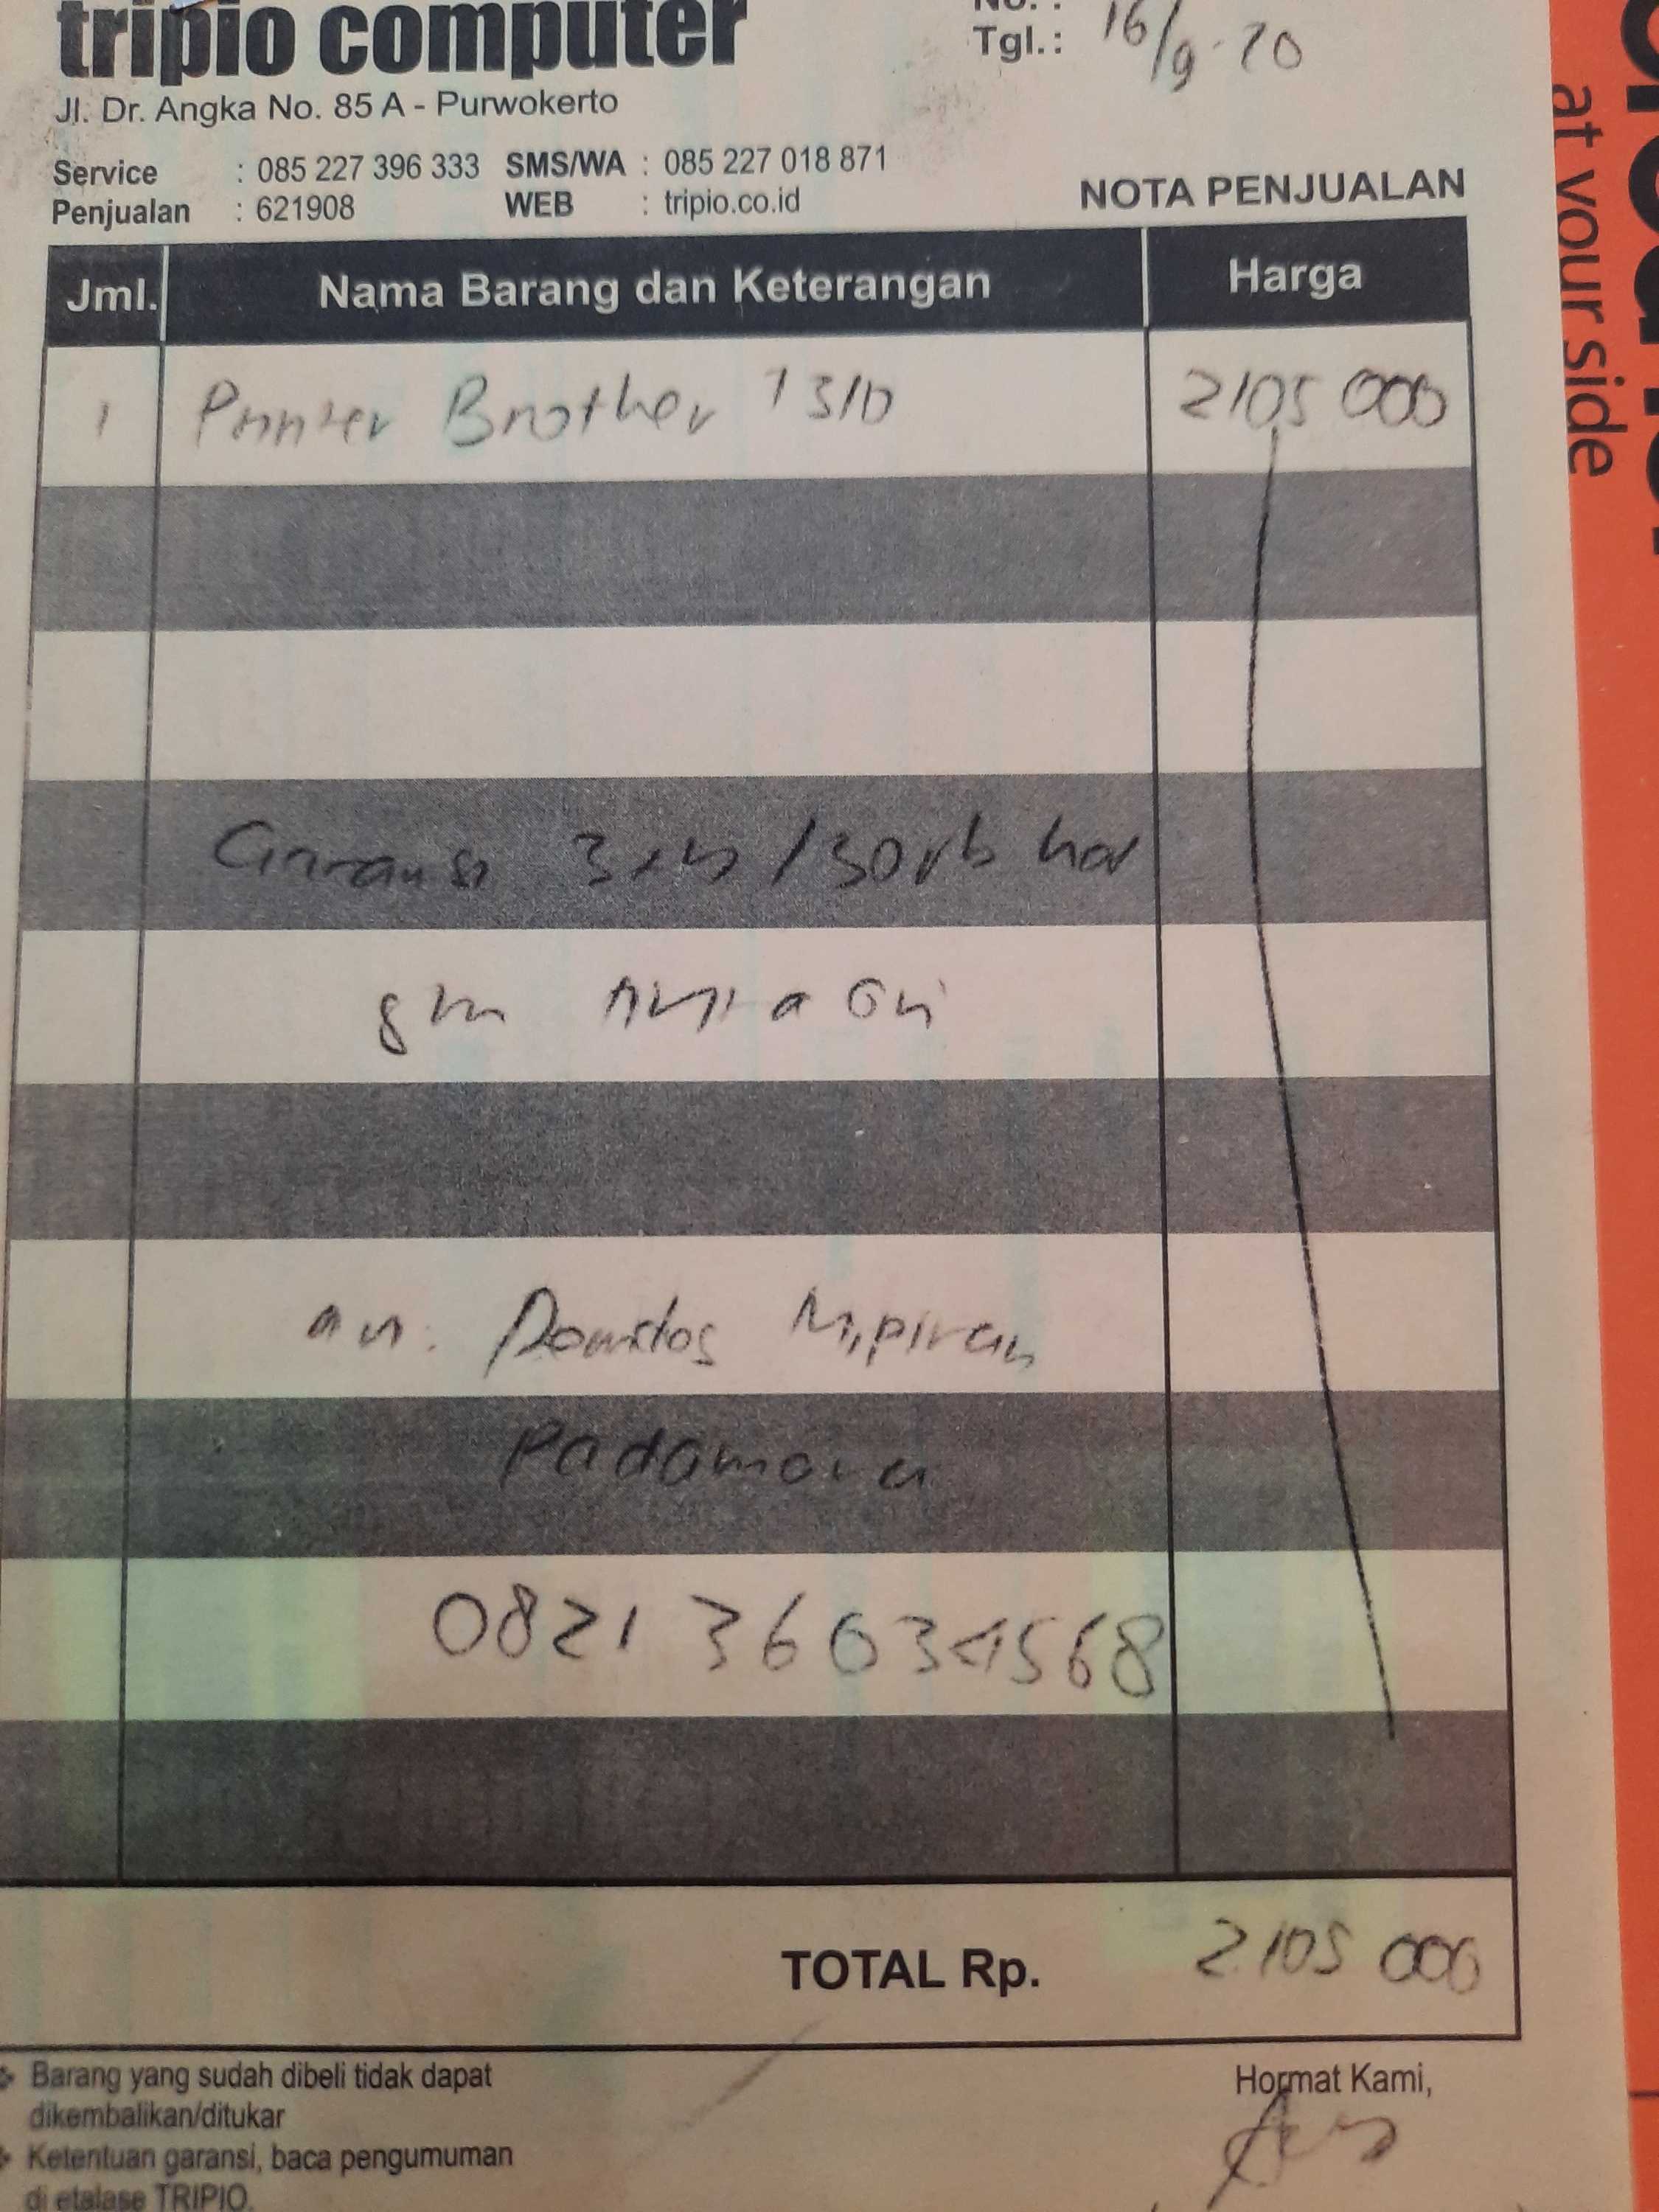 tripio computer
No. :
Tgl.: 16/9-20
Jl. Dr. Angka No. 85 A - Purwokerto
Service : 085 227 396 333 SMS/WA : 085 227 018 871
Penjualan : 621908 WEB : tripio.co.id
NOTA PENJUALAN
Jml. Nama Barang dan Keterangan Harga
1 Printer Brother T310 2105 000
Garansi 3th / 30rb hal
an. Mipiran
Padamara
0821 36634568
TOTAL Rp. 2.105 000
Barang yang sudah dibeli tidak dapat
dikembalikan/ditukar
Ketentuan garansi, baca pengumuman
di etalase TRIPIO.
Hormat Kami,
at your side